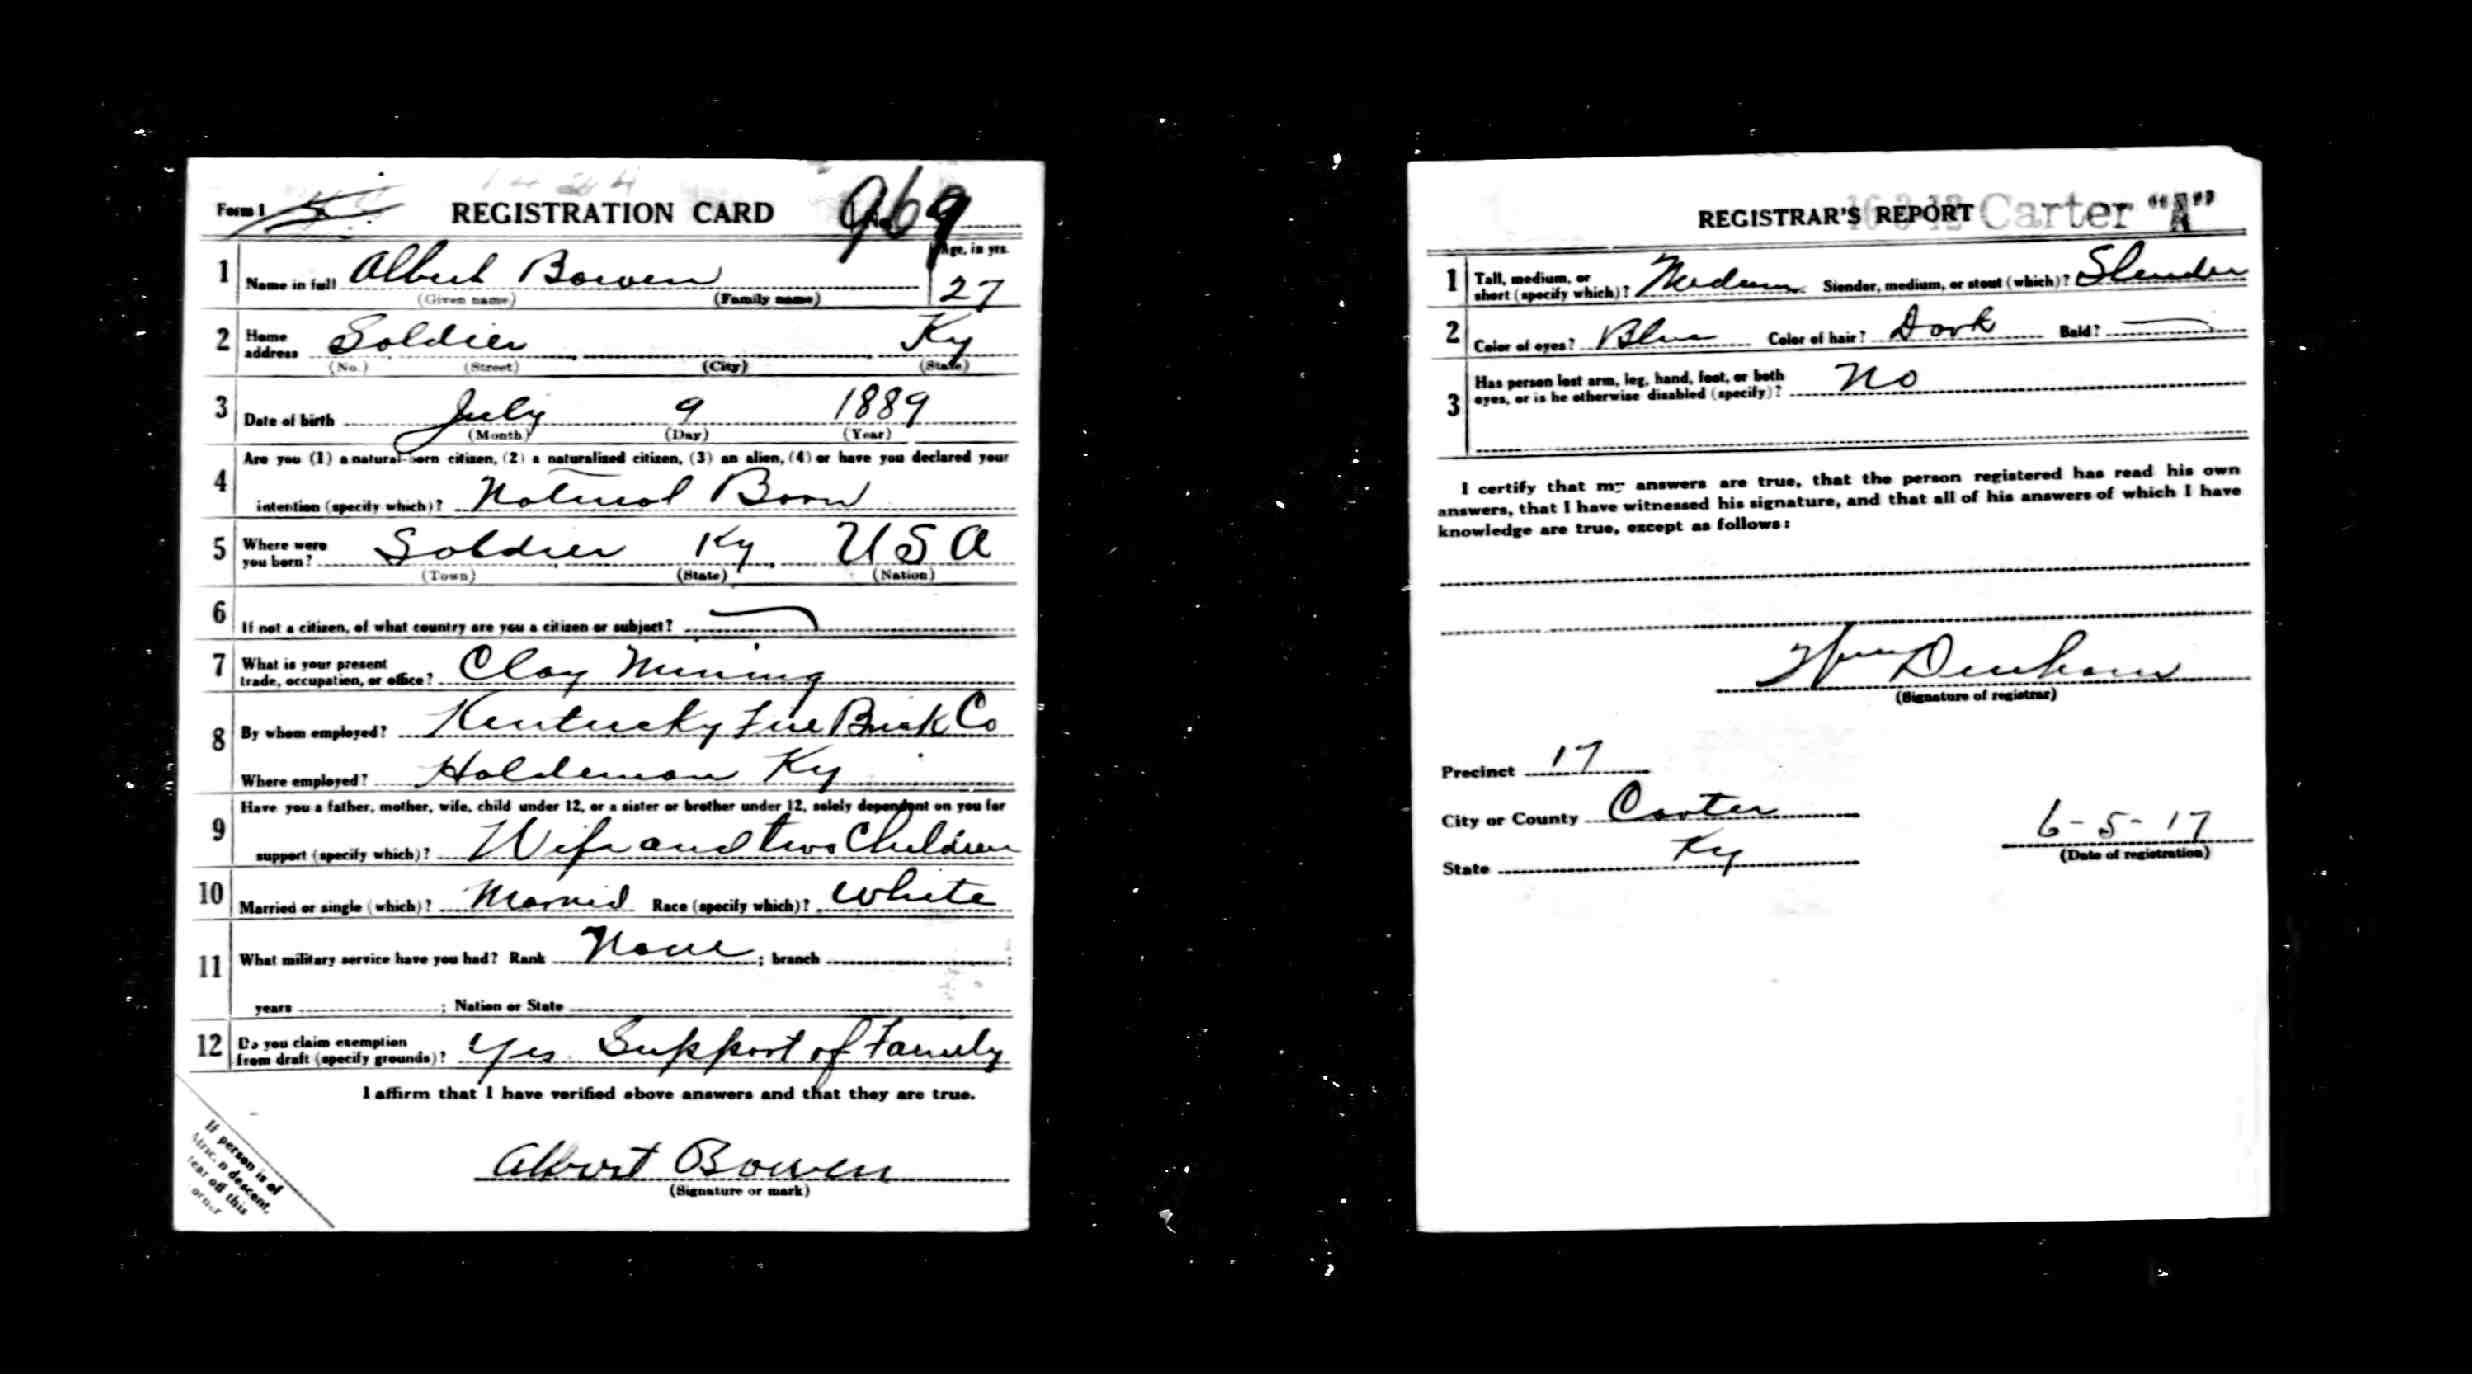 Form 1 REGISTRATION CARD No. 969
1 Name in full Albert Bowen Age, in yrs. 27
(Given name) (Family name)
2 Home address Soldier Ky
(No.) (Street) (City) (State)
3 Date of birth July 9 1889
(Month) (Day) (Year)
4 Are you (1) a natural-born citizen, (2) a naturalized citizen, (3) an alien, (4) or have you declared your
intention (specify which)? Natural Born
5 Where were you born? Soldier Ky USA
(Town) (State) (Nation)
6 If not a citizen, of what country are you a citizen or subject?
7 What is your present trade, occupation, or office? Clay Mining
8 By whom employed? Kentucky Fire Brick Co
Where employed? Haldeman Ky
9 Have you a father, mother, wife, child under 12, or a sister or brother under 12, solely dependent on you for
support (specify which)? Wife and two Children
10 Married or single (which)? Married Race (specify which)? White
11 What military service have you had? Rank None ; branch ;
years ; Nation or State
12 Do you claim exemption from draft (specify grounds)? Yes Support of Family
I affirm that I have verified above answers and that they are true.
Albert Bowen
(Signature or mark)
If person is of
African descent,
tear off this
corner
REGISTRAR'S REPORT Carter "A"
1 Tall, medium, or short (specify which)? Medium Slender, medium, or stout (which)? Slender
2 Color of eyes? Blue Color of hair? Dark Bald?
3 Has person lost arm, leg, hand, foot, or both eyes, or is he otherwise disabled (specify)? No
I certify that my answers are true, that the person registered has read his own
answers, that I have witnessed his signature, and that all of his answers of which I have
knowledge are true, except as follows:
Wm Dunham
(Signature of registrar)
Precinct 17
City or County Carter
State Ky
6-5-17
(Date of registration)